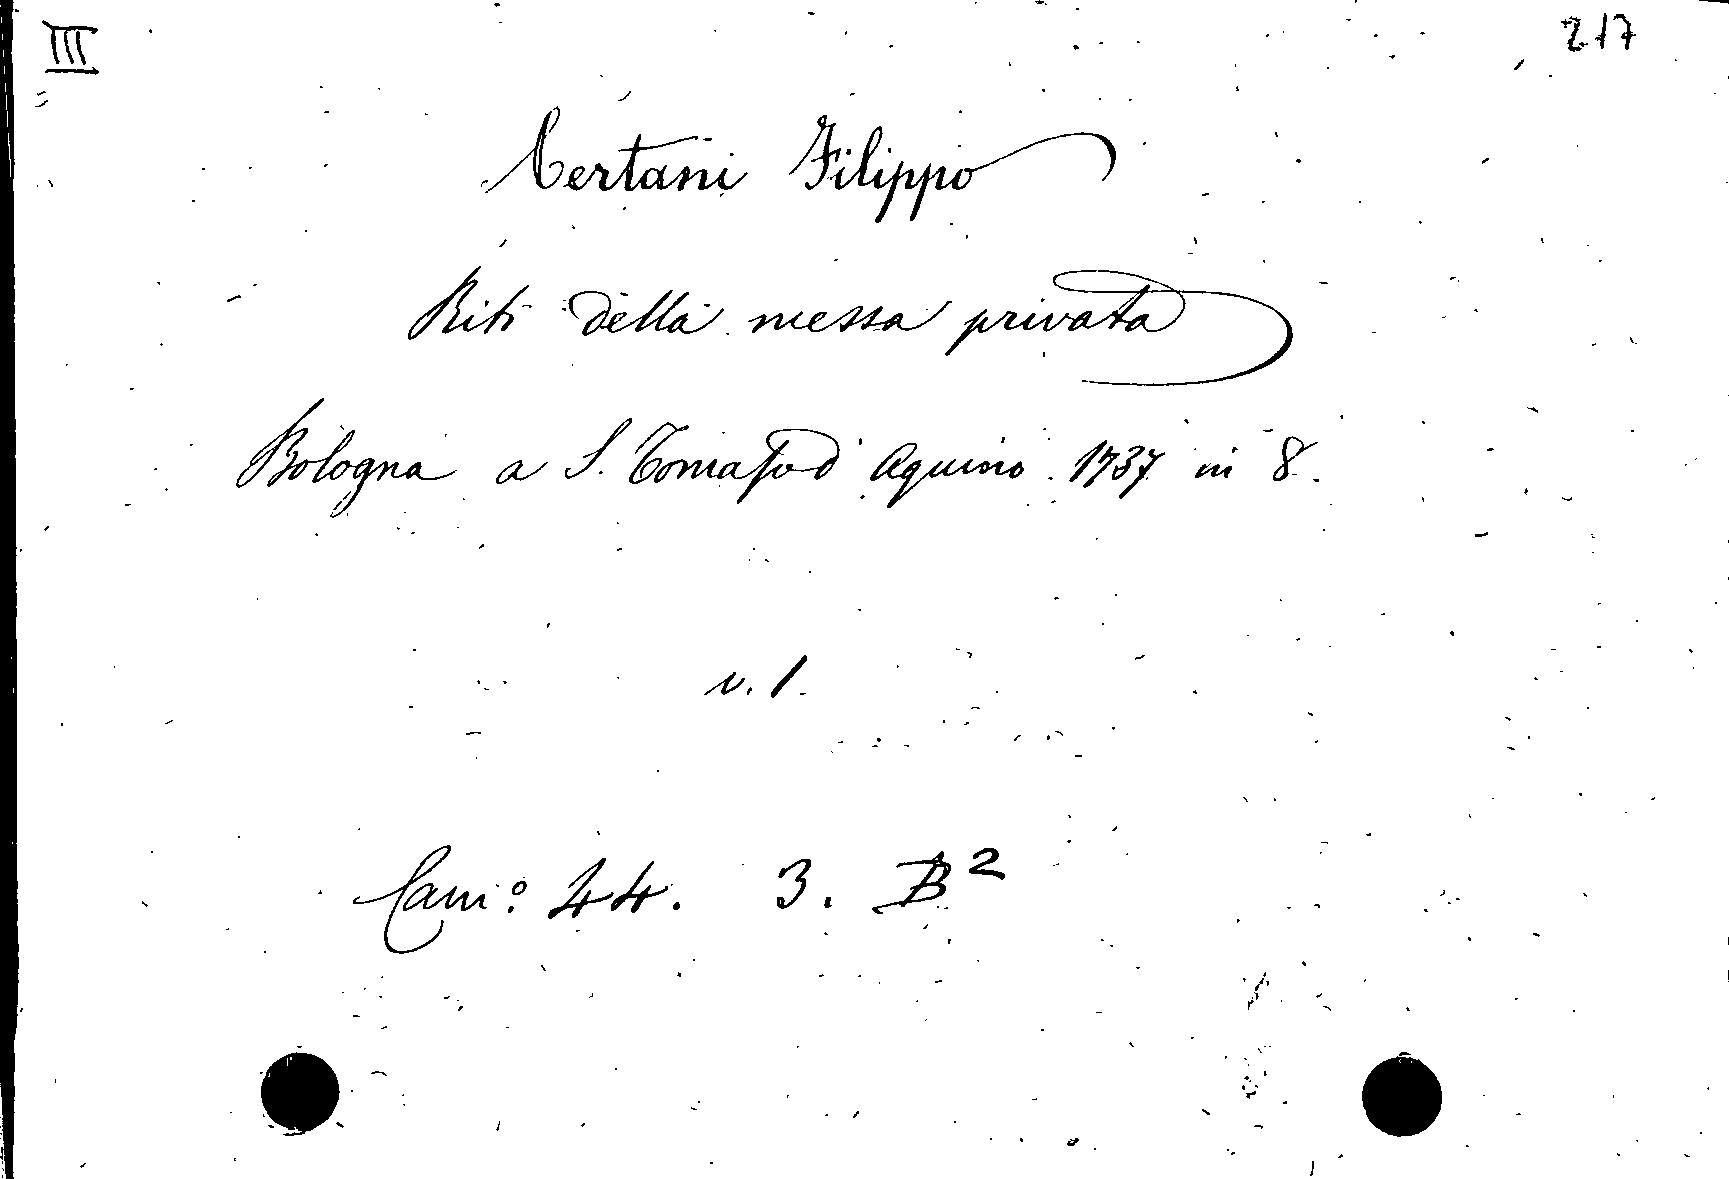 III
217
Certani Filippo
Riti della messa privata
Bologna a S. Tomaso d'Aquino 1737 in 8.
v. 1.
Cam.º 44. 3. B²